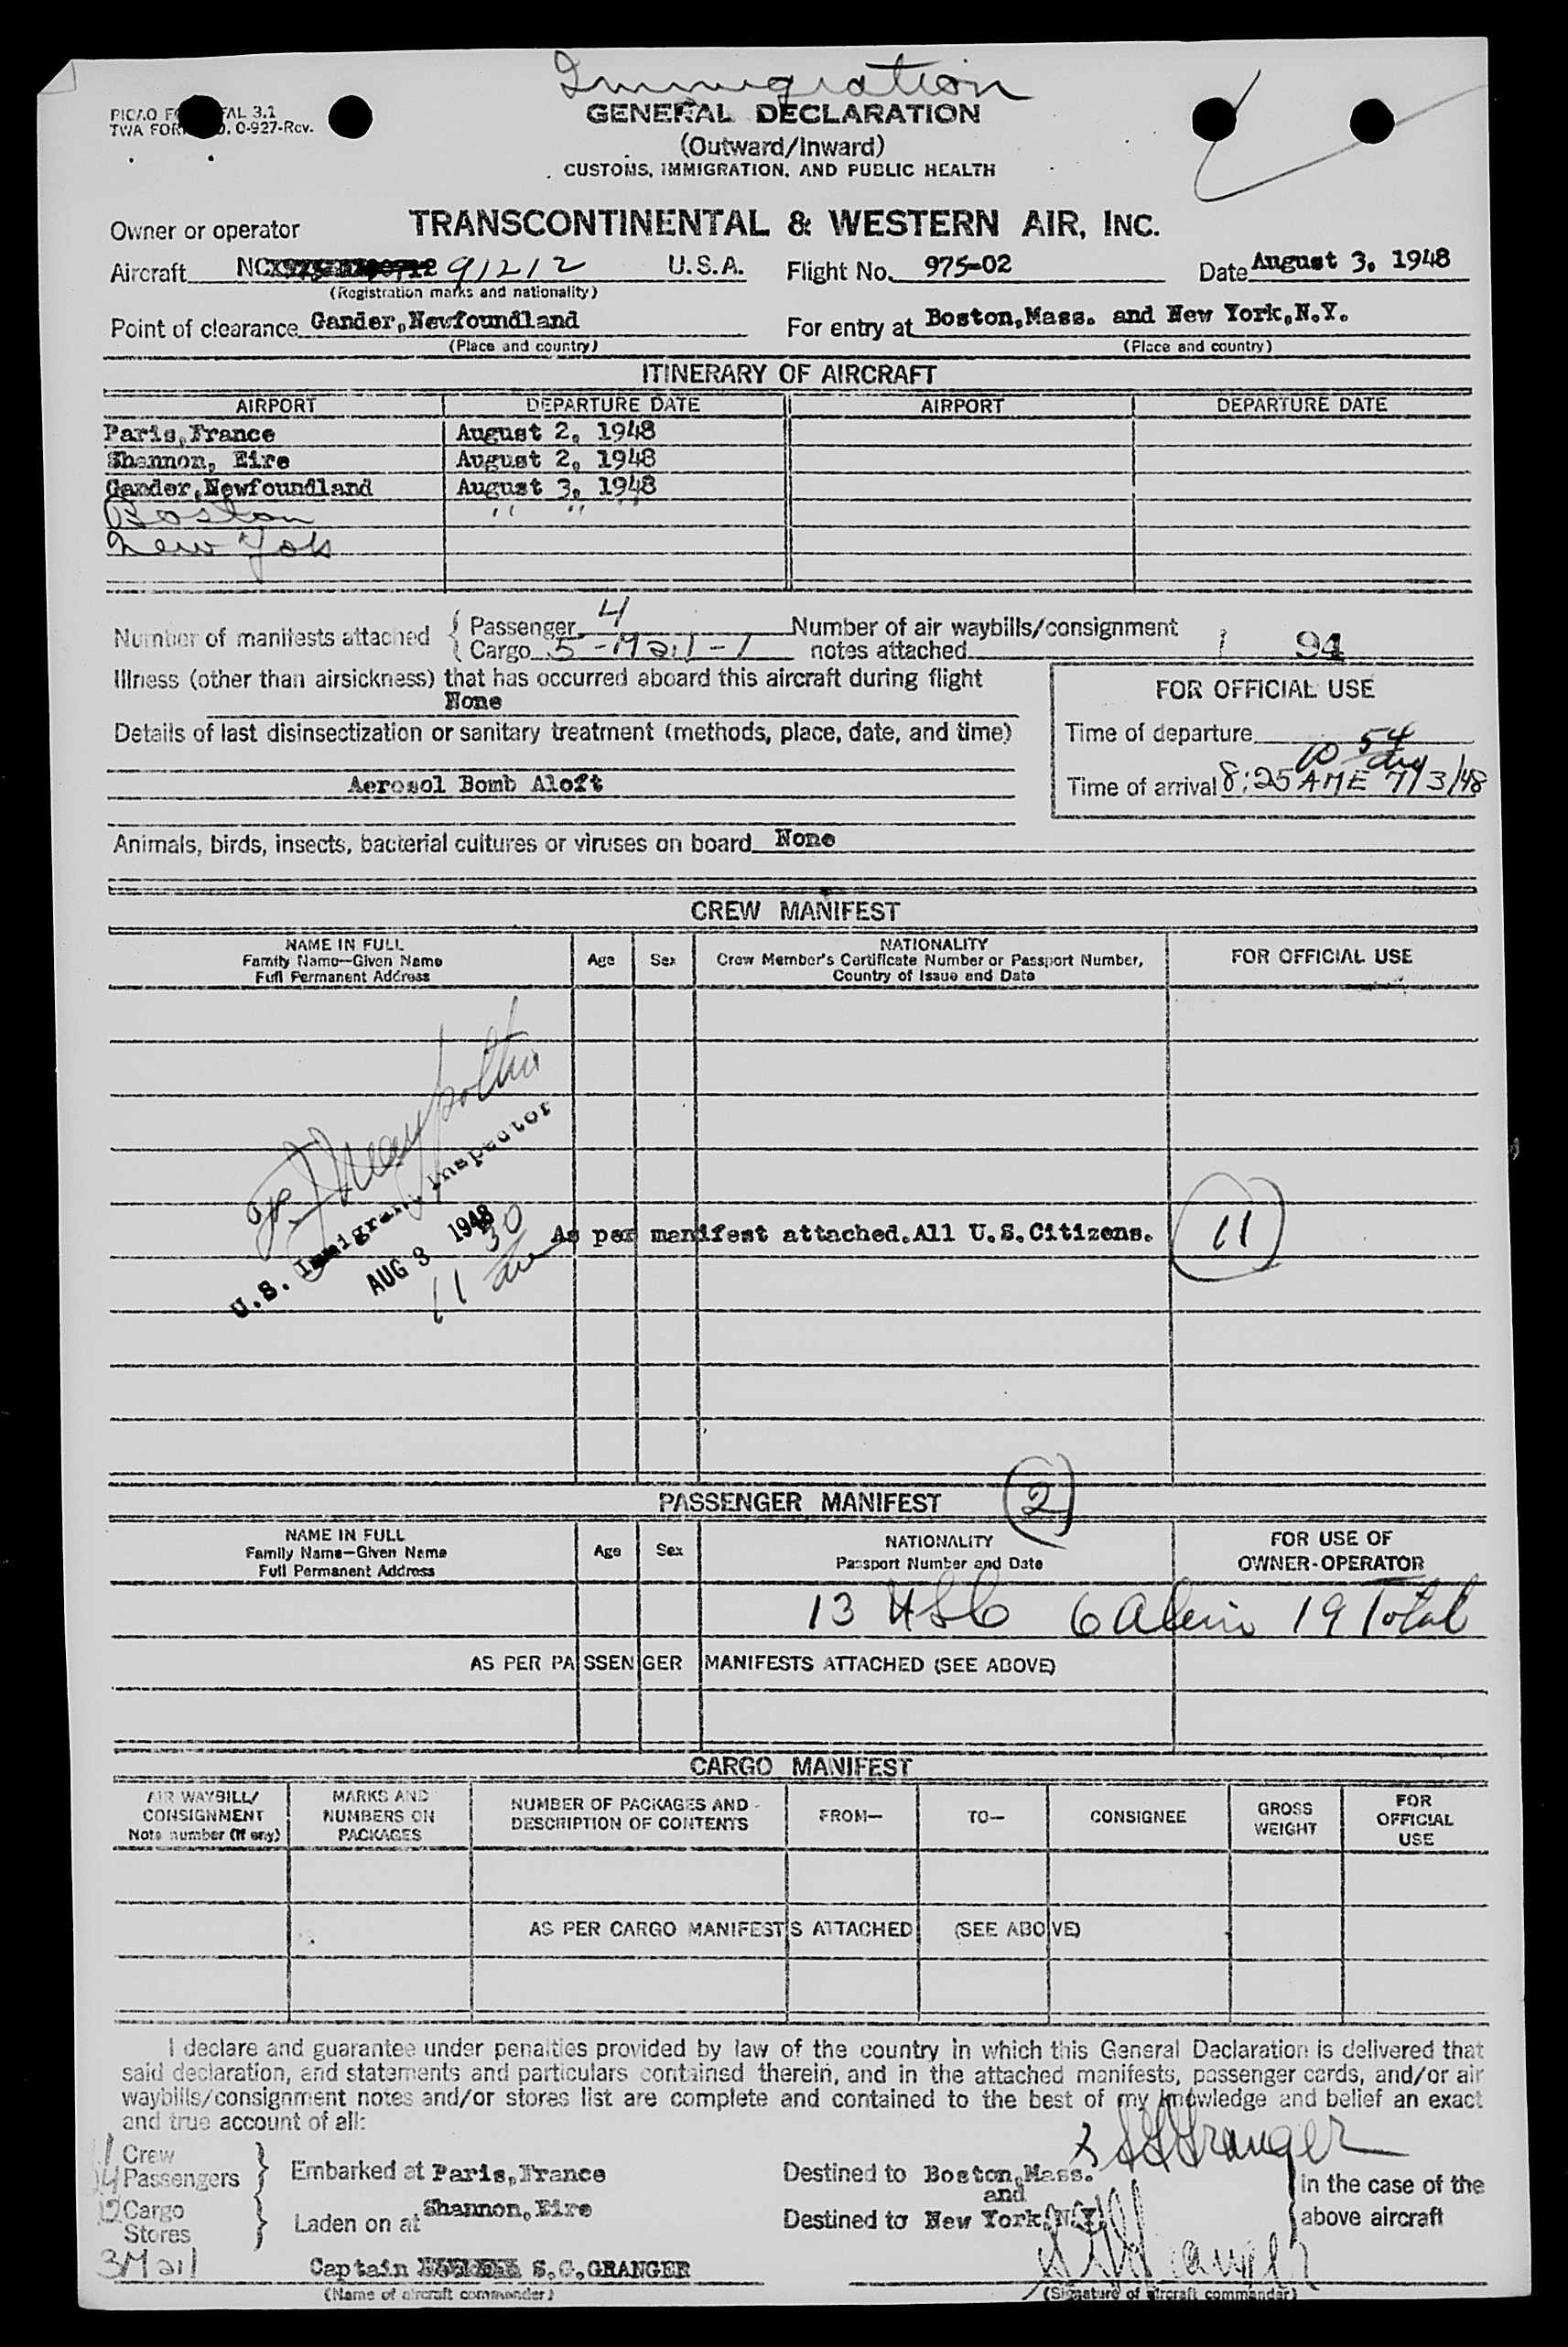 Immigration
PICAO F AL 3.1
TWA FOR O. O-927-Rev.
GENERAL DECLARATION
(Outward/Inward)
CUSTOMS, IMMIGRATION, AND PUBLIC HEALTH
Owner or operator TRANSCONTINENTAL & WESTERN AIR, INC.
Aircraft NC 91212 U.S.A. Flight No. 975-02 Date August 3, 1948
(Registration marks and nationality)
Point of clearance Gander,Newfoundland For entry at Boston,Mass. and New York,N.Y.
(Place and country) (Place and country)
ITINERARY OF AIRCRAFT
AIRPORT DEPARTURE DATE AIRPORT DEPARTURE DATE
Paris,France August 2, 1948
Shannon, Eire August 2, 1948
Gander,Newfoundland August 3, 1948
Boston " " "
New York
Number of manifests attached { Passenger 4 Number of air waybills/consignment
Cargo 5 - Mail - 1 notes attached 94
Illness (other than airsickness) that has occurred aboard this aircraft during flight
None
FOR OFFICIAL USE
Details of last disinsectization or sanitary treatment (methods, place, date, and time)
Aerosol Bomb Aloft
Time of departure 10 54
Time of arrival 8:25 AME 7/3/48
Animals, birds, insects, bacterial cultures or viruses on board None
CREW MANIFEST
NAME IN FULL
Family Name—Given Name
Full Permanent Address
Age Sex
NATIONALITY
Crew Member's Certificate Number or Passport Number,
Country of Issue and Date
FOR OFFICIAL USE
U.S. Immigrant Inspector
AUG 3 1948
11 30
As per manifest attached.All U.S.Citizens. 11
PASSENGER MANIFEST 2
NAME IN FULL
Family Name—Given Name
Full Permanent Address
Age Sex
NATIONALITY
Passport Number and Date
FOR USE OF
OWNER-OPERATOR
13 USC 6 Alien 19 Total
AS PER PASSENGER MANIFESTS ATTACHED (SEE ABOVE)
CARGO MANIFEST
AIR WAYBILL/
CONSIGNMENT
Note number (if any)
MARKS AND
NUMBERS ON
PACKAGES
NUMBER OF PACKAGES AND
DESCRIPTION OF CONTENTS
FROM— TO— CONSIGNEE
GROSS
WEIGHT
FOR
OFFICIAL
USE
AS PER CARGO MANIFESTS ATTACHED (SEE ABOVE)
I declare and guarantee under penalties provided by law of the country in which this General Declaration is delivered that
said declaration, and statements and particulars contained therein, and in the attached manifests, passenger cards, and/or air
waybills/consignment notes and/or stores list are complete and contained to the best of my knowledge and belief an exact
and true account of all:
S G Granger
Crew
Passengers } Embarked at Paris,France Destined to Boston,Mass. in the case of the
and
Cargo Shannon,Eire
Stores } Laden on at Destined to New York,N.Y. above aircraft
3 Mail
Captain S.G.GRANGER S G Granger
(Name of aircraft commander) (Signature of aircraft commander)